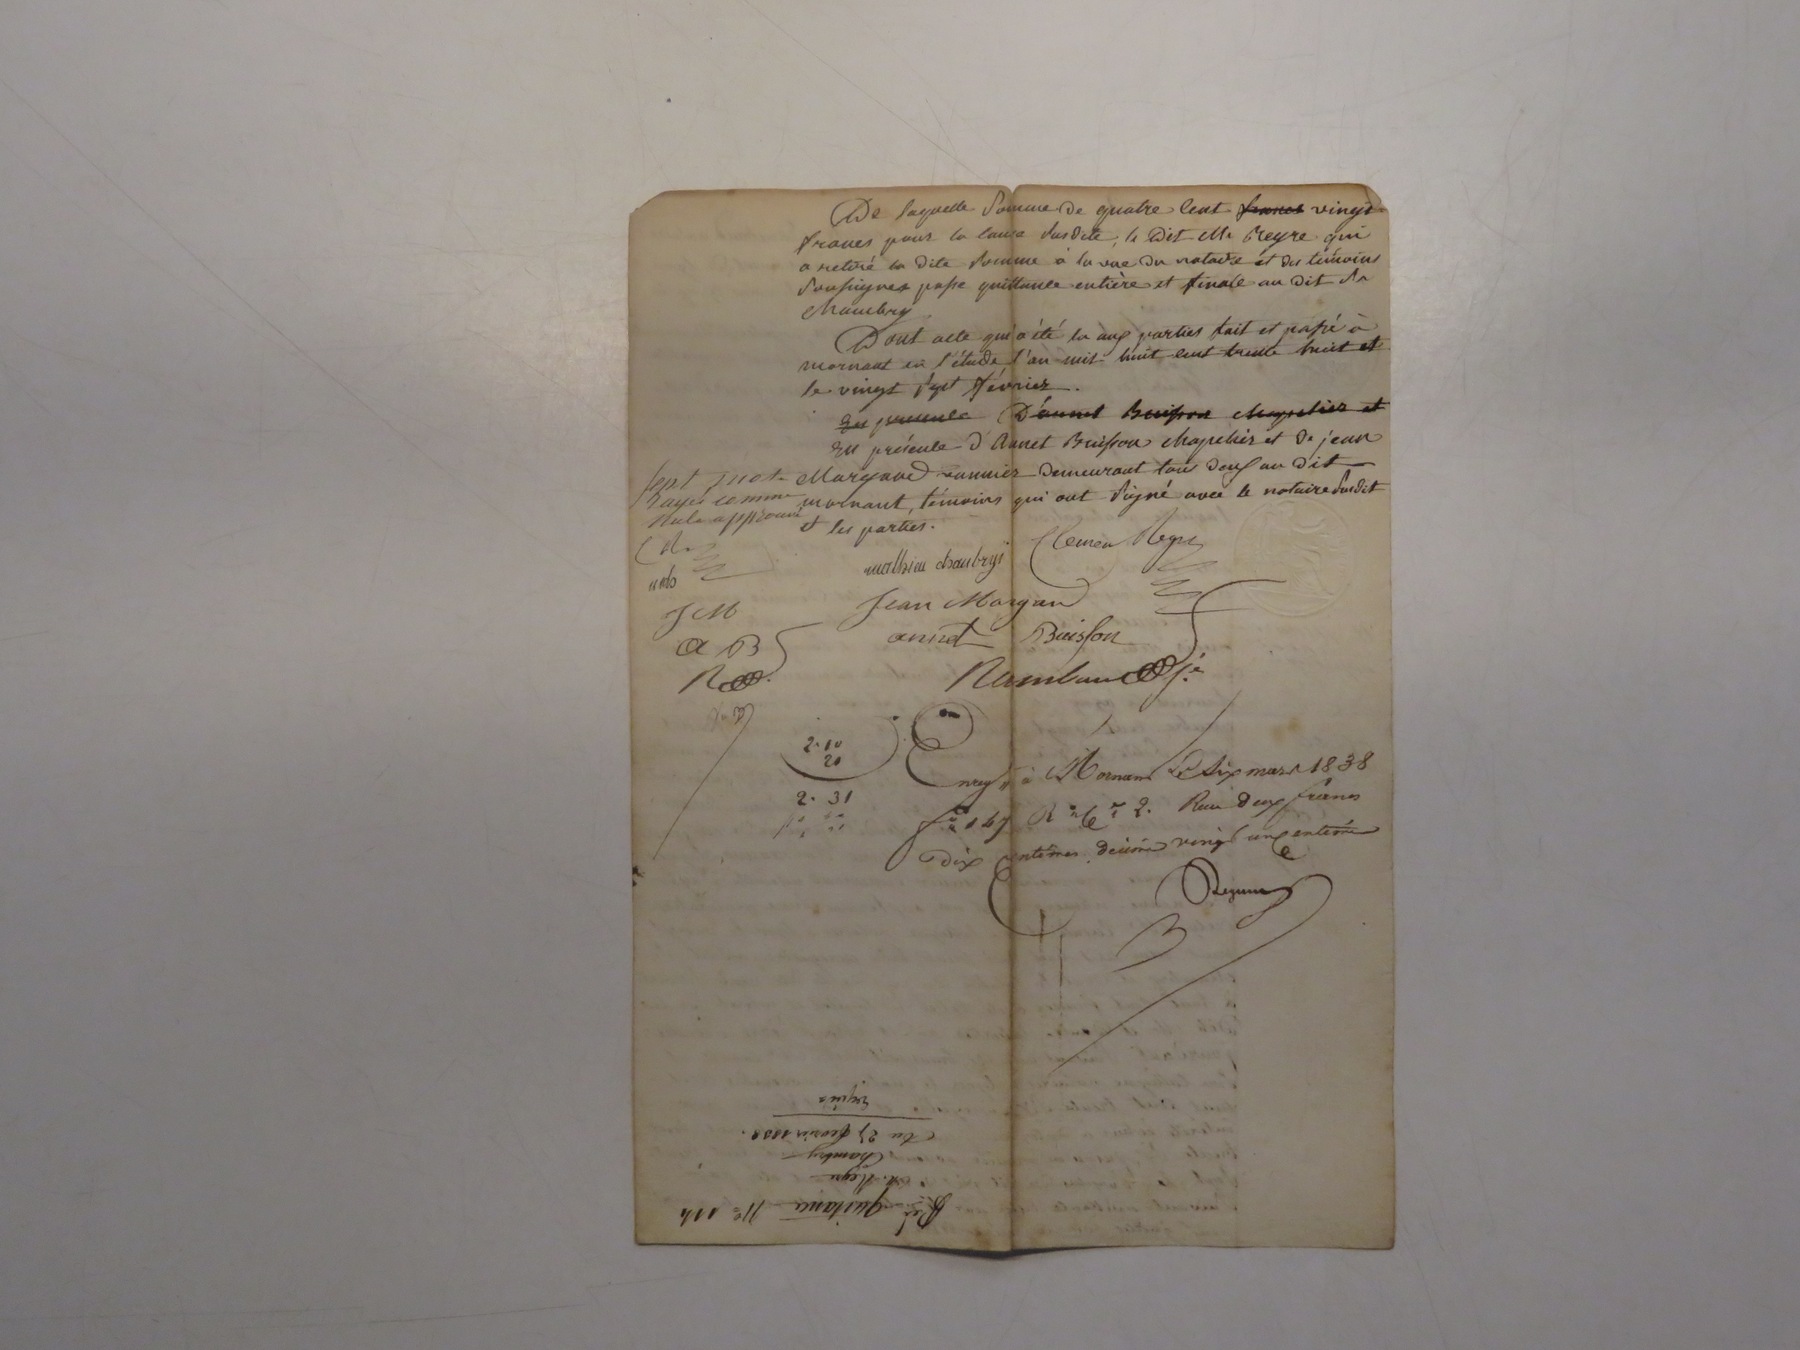 De laquelle somme de quatre cent francs vingt
francs pour la cause susdite, le dit Mr Peyre qui
a retiré la dite somme à la vue du notaire et des témoins
soussignes passe quittance entière et finale au dit Sr
Chambry
Dont acte qui a été lu aux parties fait et passé à
mornant en l'étude, l'an mil huit cent trente huit et
le vingt sept février.
En presence D'annet Buisson chapelier et
En présence d'Annet Buisson chapelier et de jean
Margand demeurant tous deux au dit
mornant, témoins qui ont signé avec le notaire susdit
et les parties.
sept mots
rayés comme
nuls approuvés
mathieu chambry
Jean Margand
annet Buisson
J M
a B
2. 10
21
2. 31
à Mornant Le Six mars 1838
Reçu deux francs
Dix centimes, decime vingt un centime
Qce quittance No 114
Chambry
Du 27 fevrier 1838.